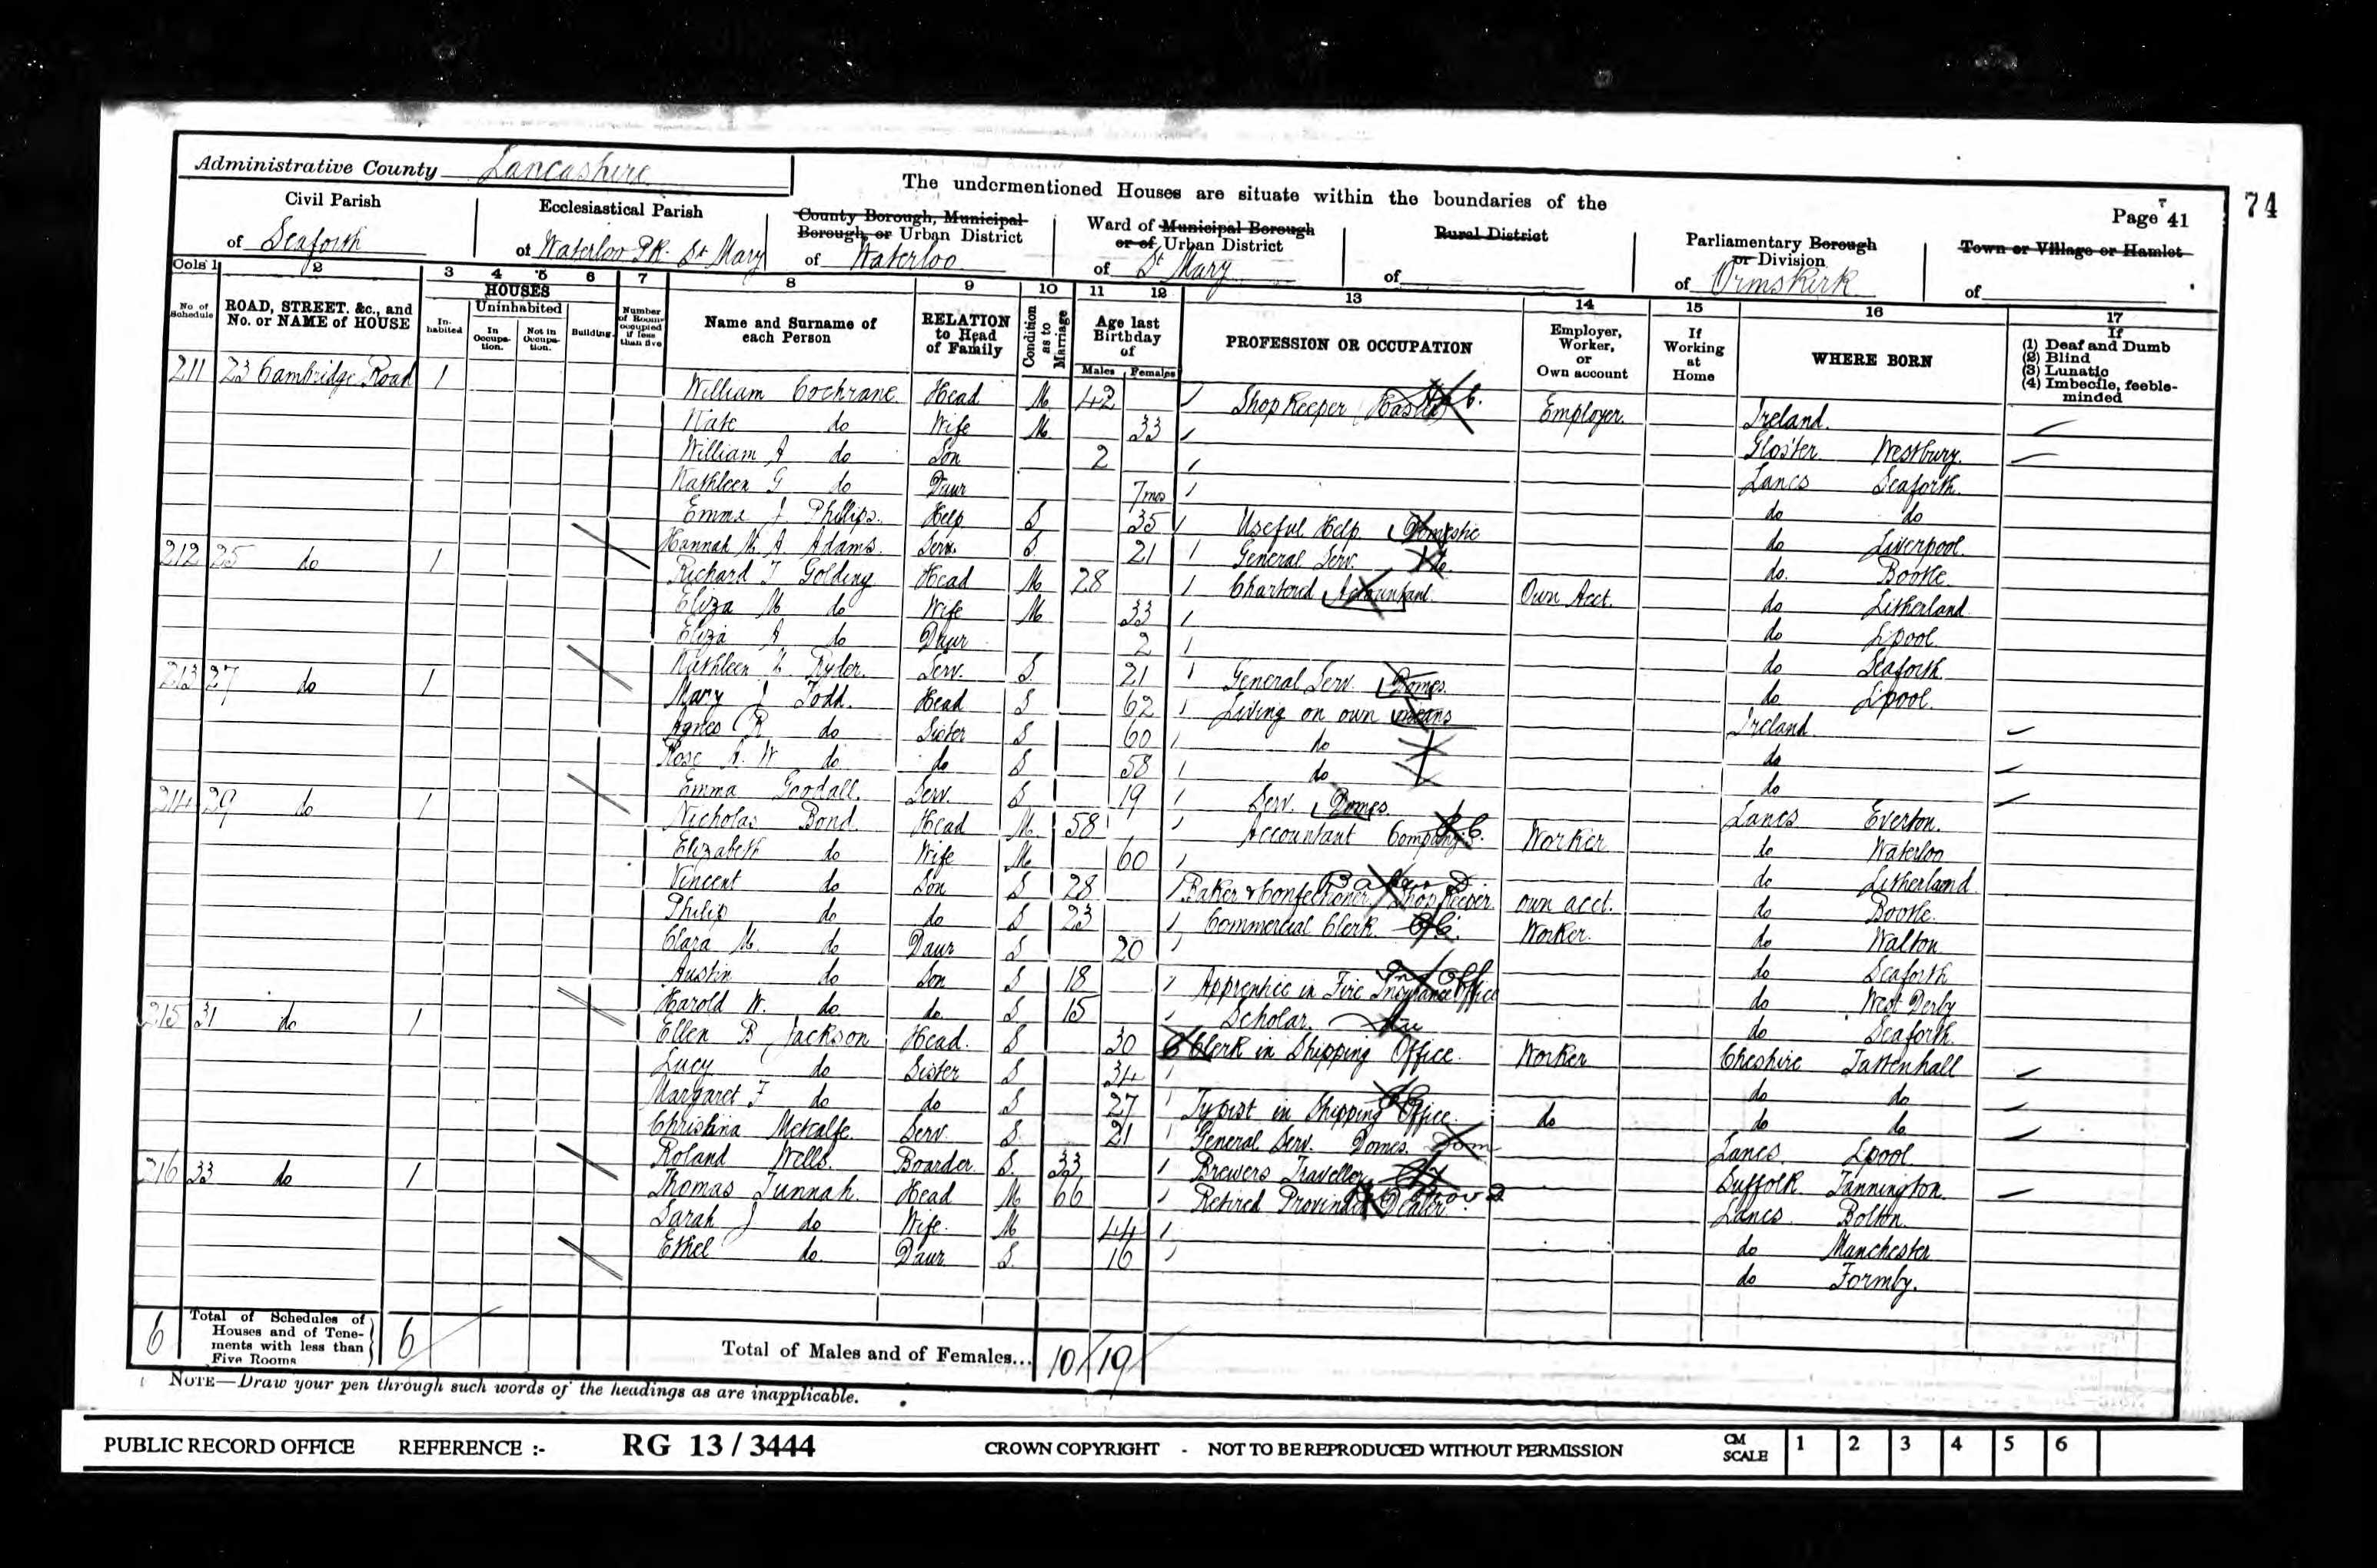 Administrative County Lancashire
The undermentioned Houses are situate within the boundaries of the
Page 41
74
Civil Parish
of Seaforth
Ecclesiastical Parish
of Waterloo Pk. St Mary
County Borough, Municipal
Borough, or Urban District
of Waterloo
Ward of Municipal Borough
or of Urban District
of St Mary
Rural District
of
Parliamentary Borough
or Division
of Ormskirk
Town or Village or Hamlet
of
Cols 1 2 3 4 5 6 7 8 9 10 11 12 13 14 15 16 17
No. of Schedule
ROAD, STREET, &c., and No. or NAME of HOUSE
HOUSES
Inhabited
Uninhabited
In Occupation.
Not in Occupation.
Building.
Number of Rooms occupied if less than five
Name and Surname of each Person
RELATION to Head of Family
Condition as to Marriage
Age last Birthday of
Males Females
PROFESSION OR OCCUPATION
Employer, Worker, or Own account
If Working at Home
WHERE BORN
If
(1) Deaf and Dumb
(2) Blind
(3) Lunatic
(4) Imbecile, feeble-minded
211 23 Cambridge Road 1 William Cochrane Head M 42 Shopkeeper Employer Ireland
Kate do Wife M 33 Gloster Westbury
William A do Son 2 Lancs Seaforth
Kathleen G do Daur 7 mos do do
Emma J Phillips Help S 35 Useful Help Domestic do Liverpool
Hannah M A Adams Serv. S 21 General Serv. do Bootle
212 25 do 1 Richard T Golding Head M 28 Chartered Accountant Own Acct. do Litherland
Eliza M do Wife M 33 do Lpool
Eliza A do Daur 2 do Seaforth
Kathleen Ryder Serv. S 21 General Serv. Domes. do Lpool
213 27 do 1 Mary J Todd Head S 62 Living on own means Ireland
Agnes R do Sister S 60 do do
Rose A. W do do S 58 do do
Emma Goodall Serv. S 19 Serv. Domes. Lancs Everton
214 29 do 1 Nicholas Bond Head M 58 Accountant Company's Worker do Waterloo
Elizabeth do Wife M 60 do Litherland
Vincent do Son S 28 Baker & Confectioner Shopkeeper own acct. do Bootle
Philip do do S 23 Commercial Clerk Worker do Walton
Clara M. do Daur S 20 do Seaforth
Austin do Son S 18 Apprentice in Fire Insurance Office do West Derby
Harold W. do do S 15 Scholar do Seaforth
215 31 do 1 Ellen B Jackson Head S 30 Clerk in Shipping Office Worker Cheshire Tattenhall
Lucy do Sister S 34 do do
Margaret F do do S 27 Typist in Shipping Office do do do
Christina Metcalfe Serv S 21 General Serv. Domes. Lancs Lpool
Roland Wells Boarder S 33 Brewers Traveller Suffolk Tannington
216 33 do 1 Thomas Tunnah Head M 66 Retired Dealer Lancs Bolton
Sarah J do Wife M 44 do Manchester
Ethel do Daur S 16 do Formby
6 Total of Schedules of Houses and of Tenements with less than Five Rooms 6
Total of Males and of Females... 10 19
NOTE—Draw your pen through such words of the headings as are inapplicable.
PUBLIC RECORD OFFICE REFERENCE :- RG 13 / 3444 CROWN COPYRIGHT - NOT TO BE REPRODUCED WITHOUT PERMISSION CM SCALE 1 2 3 4 5 6